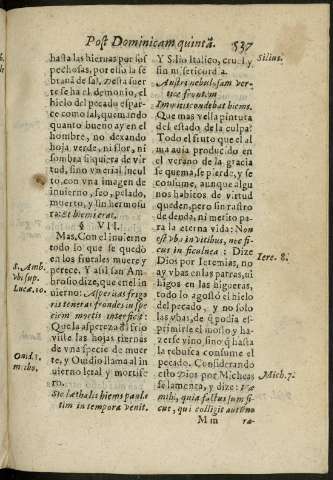 Post Dominicam quintã. 537
hasta las hieruas por sos
pechosas, por esso la se
brauã de sal. Desta suer
te se ha el demonio, el
hielo del pecado espar-
ce como sal, quemando
quanto bueno ay en el
hombre, no dexando
hoja verde, ni flor, ni
sombra siquiera de vir
tud, sino vniersal incul
to, con vna imagen de
inuierno, feo, pelado,
muerto, y sin hermosu
ra: Et hiems erat.
§ VII.
Mas, Con el inuierno
todo lo que se quedò
en los frutales muere y
perece. Y assi san Am-
brosio dize, que en el in
uierno: Asperitas frigo
ris teneras frondes in spe
ciem mortis interficit:
Que la aspereza del frio
viste las hojas tiernas
de vna specie de muer
te, y Ouidio llama al in
uierno letal y mortife
ro.
Sic læthalis hiems paula
tim in tempora venit.
S. Amb.
vbi sup.
Luca. 10.
Ouid. 2.
metho.
Y Silio Italico, cruel, y
sin misericordia.
Austri nebulosam ver-
tice frontem
Immitis condebat hiems.
Que mas vella pintura
del estado de la culpa?
Todo el fruto que el al
ma auia producido en
el verano de la gracia
se quema, se pierde, y se
consume, aunque algu
nos habitos de virtud
queden, pero sin rastro
de denda, ni merito pa-
ra la eterna vida: Non
est vba in vitibus, nec fi-
cus in ficulnea: Dize
Dios por Ieremias, no
ay vbas en las parras, ni
higos en las higueras,
todo lo agostò el hielo
del pecado, y no solo
las vbas, de q̃ podia es-
primirse el mosto y ha-
zerse vino sino q̃ hasta
la rebusca consume el
pecado. Considerando
esto Dios por Micheas
se lamenta, y dize: Væ
mihi, quia factus sum si-
cut, qui colligit autũno
Silius.
Iere. 8.
Mich. 7.
M m ra-